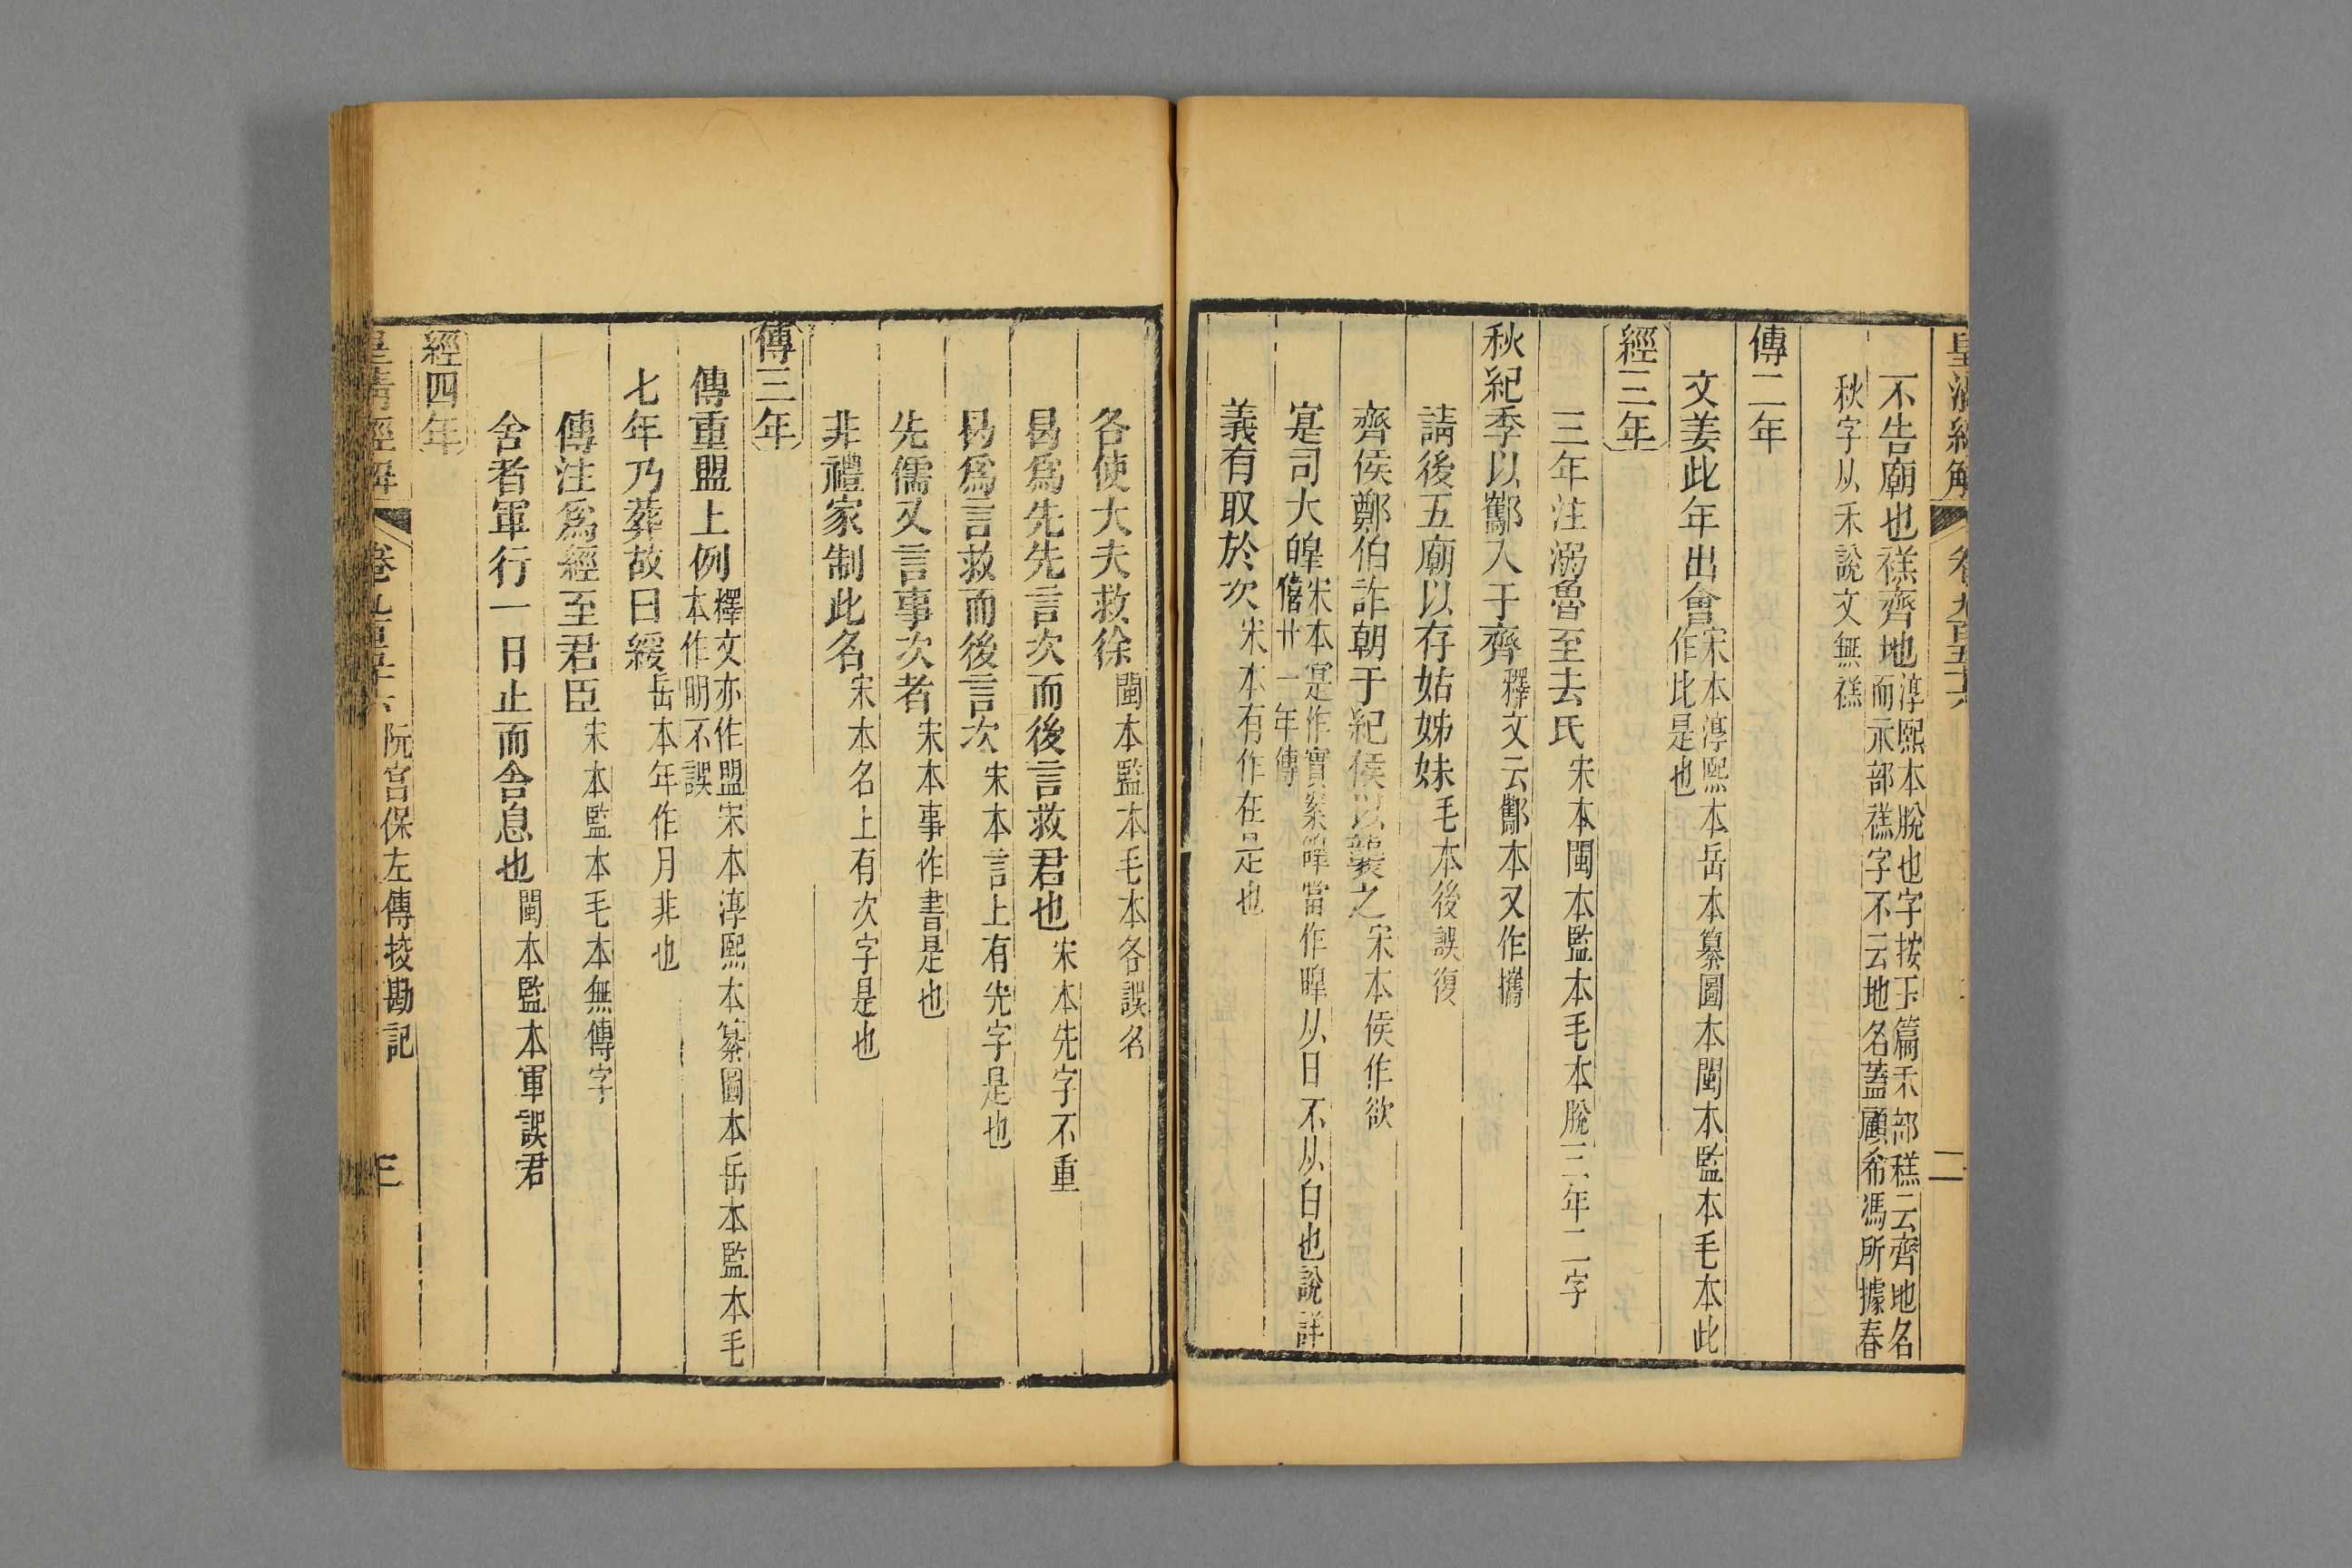 不告廟也禚齊地淳熙本脫也字按玉篇禾部禚云齊地名
而示部禚字不云地名蓋顧希馮所據春
秋字从禾說文無禚
傳二年
文姜此年出會宋本淳熙本岳本纂圖本閩本監本毛本此
作比是也
經三年
三年注溺魯至去氏宋本閩本監本毛本脫三年二字
秋紀季以酅入于齊釋文云酅本又作攜
請後五廟以存姑姊妹毛本後誤復
齊侯鄭伯詐朝于紀侯以襲之宋本侯作欲
寔司大皥宋本寔作實案皥當作暤从日不从白也說詳
僖廿一年傳
義有取於次宋本有作在是也
各使大夫救徐閩本監本毛本各誤名
曷爲先先言次而後言救君也宋本先字不重
曷爲言救而後言次宋本言上有先字是也
先儒又言事次者宋本事作書是也
非禮家制此名宋本名上有次字是也
傳三年
傳重盟上例釋文亦作盟宋本淳熙本纂圖本岳本監本毛
本作明不誤
七年乃葬故曰緩岳本年作月非也
傳注爲經至君臣宋本監本毛本無傳字
舍者軍行一日止而舍息也閩本監本軍誤君
經四年
皇清經解 卷九百五十六 阮宮保左傳挍勘記 三